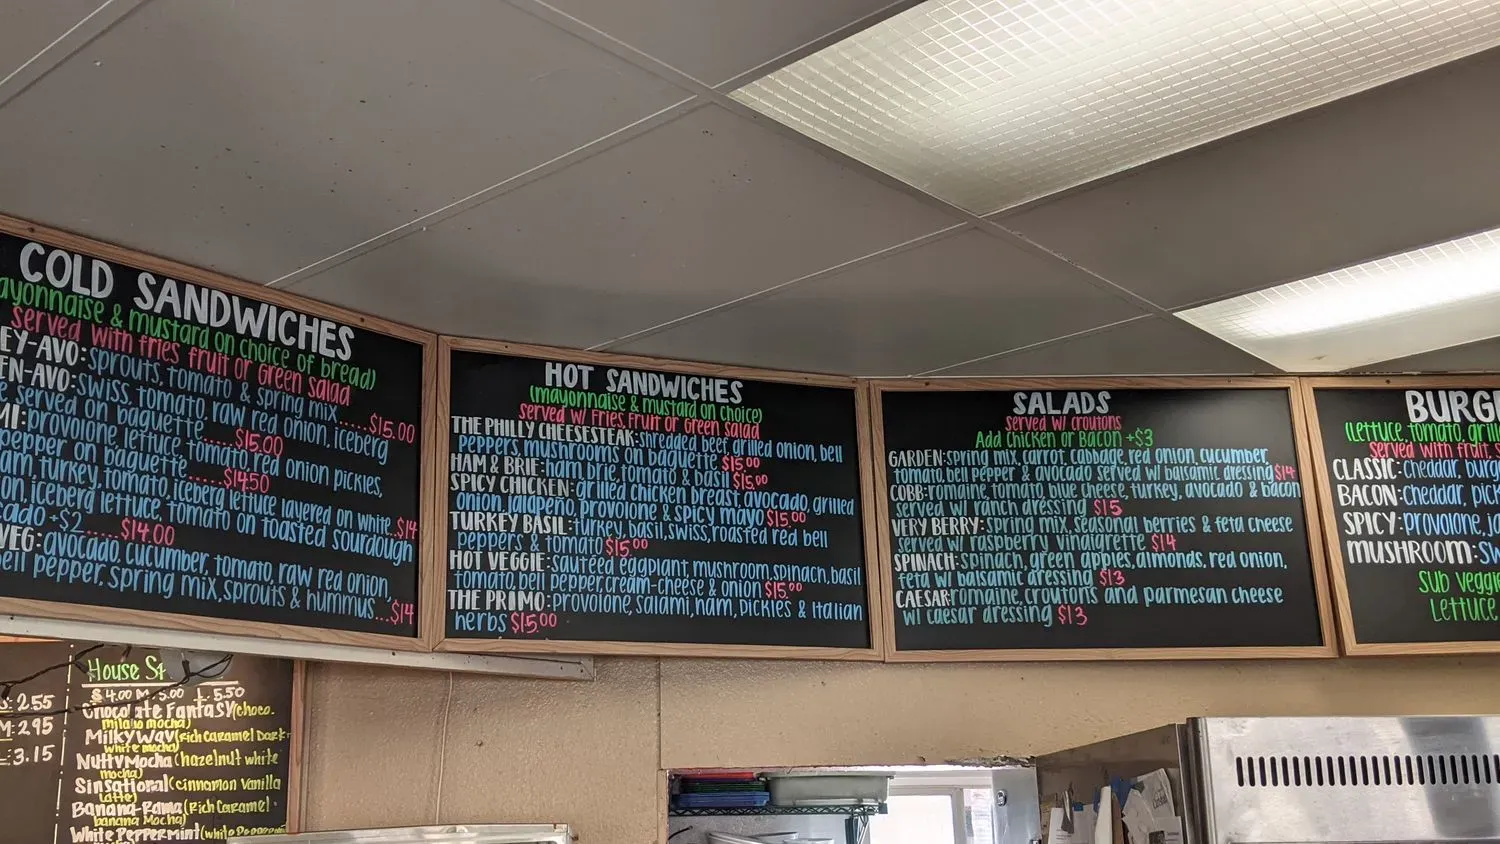 COLD SANDWICHES
ayonnaise & mustard on choice of bread)
served with fries fruit or Green salad
EY-AVO: sprouts, tomato & spring mix......$15.00
EN-AVO: swiss, tomato, raw red onion, iceberg
served on baguette......$15.00
MI: provolone, lettuce, tomato, red onion pickles,
pepper on baguette......$14.50
am, turkey, tomato, iceberg lettuce layered on white..$14
on, iceberg lettuce, tomato on toasted sourdough
cado +$2......$14.00
VEG: avocado, cucumber, tomato, raw red onion,
bell pepper, spring mix, sprouts & hummus...$14
HOT SANDWICHES
(mayonnaise & mustard on choice)
served w/ Fries, Fruit or Green salad
THE PHILLY CHEESESTEAK: shredded beef, grilled onion, bell
peppers, mushrooms on baguette $15.00
HAM & BRIE: ham, brie, tomato & basil $15.00
SPICY CHICKEN: grilled chicken breast, avocado, grilled
onion, jalapeño, provolone & spicy mayo $15.00
TURKEY BASIL: turkey, basil, swiss, roasted red bell
peppers & tomato $15.00
HOT VEGGIE: sauteed eggplant, mushroom, spinach, basil
tomato, bell pepper, cream-cheese & onion $15.00
THE PRIMO: provolone, salami, ham, pickles & Italian
herbs $15.00
SALADS
served w/ croutons
Add Chicken or Bacon +$3
GARDEN: spring mix, carrot, cabbage, red onion, cucumber,
tomato, bell pepper & avocado served w/ balsamic dressing $14
COBB: romaine, tomato, blue cheese, turkey, avocado & bacon
served w/ ranch dressing $15
VERY BERRY: spring mix, seasonal berries & feta cheese
served w/ raspberry vinaigrette $14
SPINACH: spinach, green apples, almonds, red onion,
feta w/ balsamic dressing $13
CAESAR: romaine, croutons and parmesan cheese
w/ caesar dressing $13
BURG
(Lettuce, tomato, gril
served with fruit, s
CLASSIC: cheddar, burg
BACON: cheddar, pick
SPICY: provolone, ja
MUSHROOM: sw
Sub veggi
Lettuce
S: 2.55
M: 2.95
L: 3.15
House S
S 4.00 M 5.00 L 5.50
Chocolate Fantasy (choco.
milano mocha)
Milky Way (rich caramel Dark
white mocha)
Nutty Mocha (hazelnut white
mocha)
Sinsational (cinnamon Vanilla
latte)
Banana-Rama (Rich Caramel
banana Mocha)
White Peppermint (white Peppermint